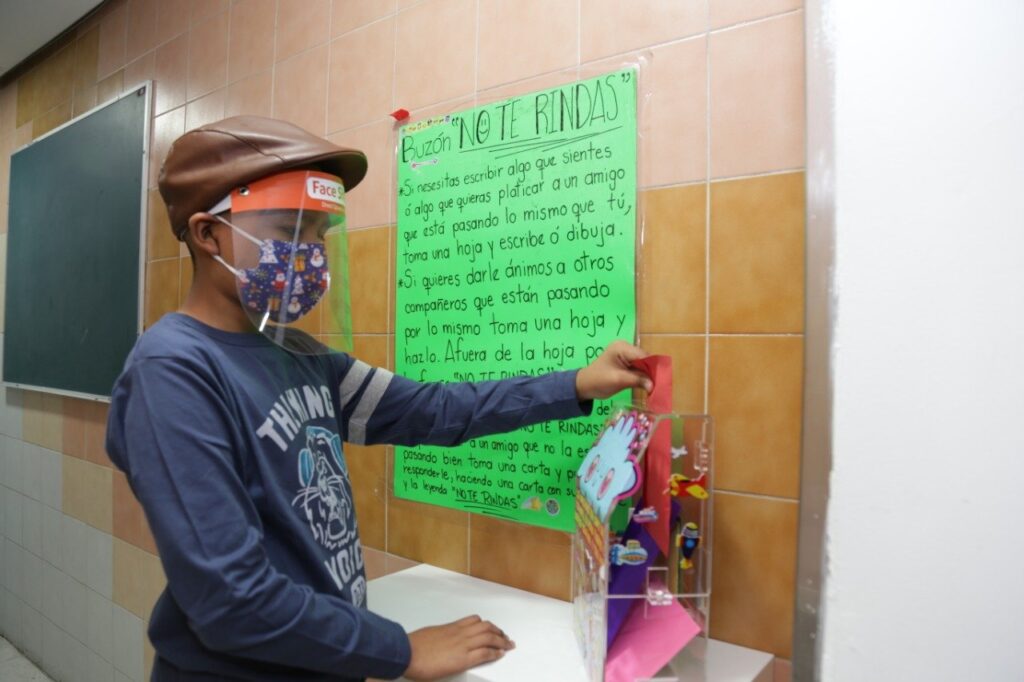 Buzón "NO TE RINDAS"
*Si nesesitas escribir algo que sientes
ó algo que quieras platicar a un amigo
que está pasando lo mismo que tú,
toma una hoja y escribe ó dibuja.
*Si quieres darle ánimos a otros
compañeros que están pasando
por lo mismo toma una hoja y
hazlo. Afuera de la hoja
"NO TE RINDAS"
NO TE RINDAS"
a un amigo que no la
pasando bien toma una carta y
responderle, haciendo una carta con su
y la leyenda "NO TE RINDAS"
Face
THINKING